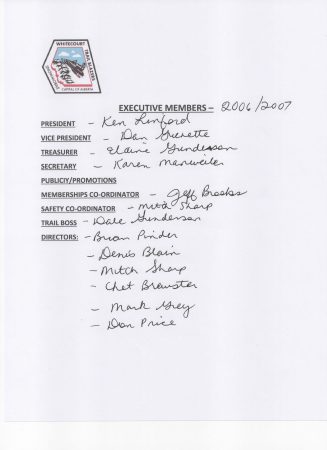 WHITECOURT
TRAIL BLAZERS
SNOWMOBILE
CAPITAL OF ALBERTA
EXECUTIVE MEMBERS – 2006/2007
PRESIDENT – Ken Linford
VICE PRESIDENT – Dan Guevette
TREASURER – Elaine Gunderson
SECRETARY – Karen Manweiler
PUBLICIY/PROMOTIONS
MEMBERSHIPS CO-ORDINATOR – Jeff Brooks
SAFETY CO-ORDINATOR – Mitch Sharp
TRAIL BOSS – Dale Gunderson
DIRECTORS: – Brian Pinder
– Denis Blain
– Mitch Sharp
– Chet Brewster
– Mark Grey
– Don Price